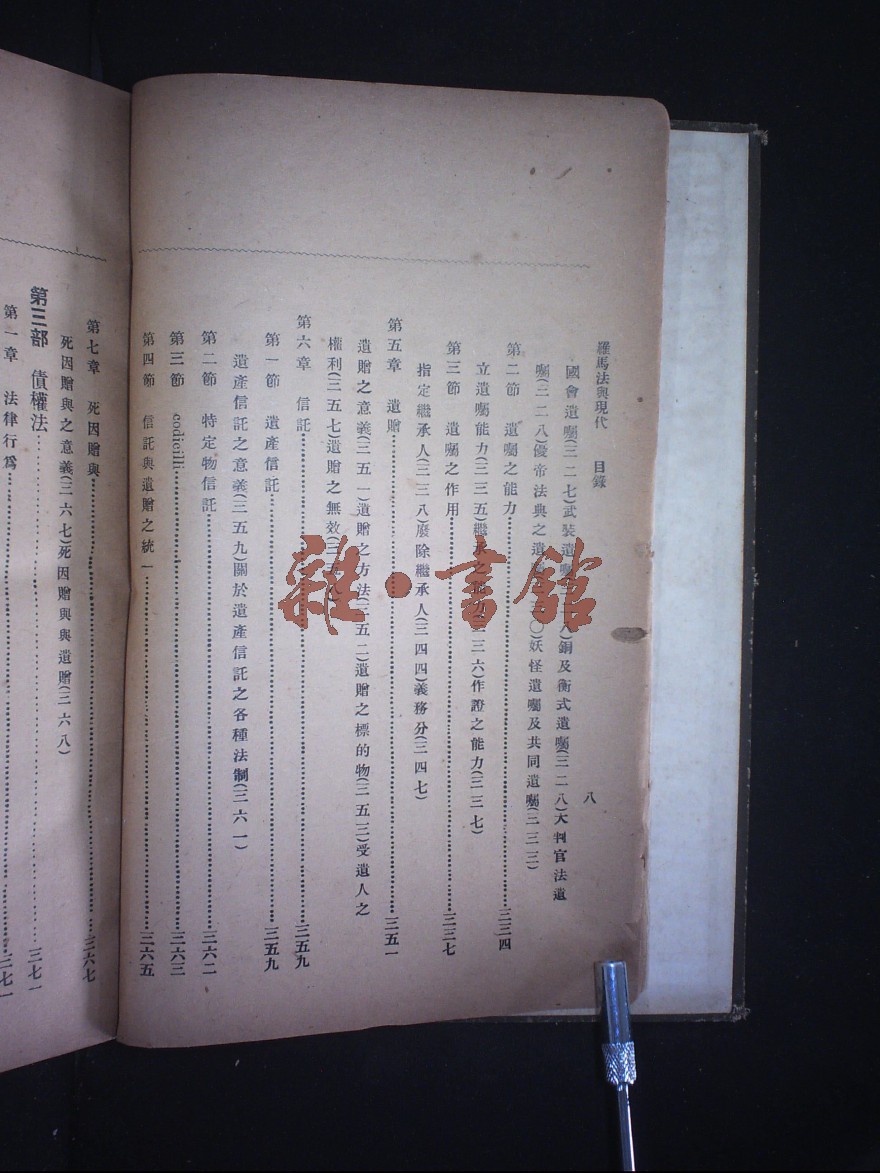 羅馬法與現代 目錄 八
國會遺囑(三二七)武裝遺囑(三二八)銅及衡式遺囑(三二八)大判官法遺
囑(三二八)優帝法典之遺囑(三三〇)妖怪遺囑及共同遺囑(三三三)
第二節 遺囑之能力…………三三四
立遺囑能力(三三五)繼承之能力(三三六)作證之能力(三三七)
第三節 遺囑之作用…………三三七
指定繼承人(三三八)廢除繼承人(三四四)義務分(三四七)
第五章 遺贈…………三五一
遺贈之意義(三五一)遺贈之方法(三五二)遺贈之標的物(三五三)受遺人之
權利(三五七)遺贈之無效(三五八)
第六章 信託…………三五九
第一節 遺產信託…………三五九
遺產信託之意義(三五九)關於遺產信託之各種法制(三六一)
第二節 特定物信託…………三六二
第三節 codicilli…………三六三
第四節 信託與遺贈之統一…………三六五
第七章 死因贈與…………三六七
死因贈與之意義(三六七)死因贈與與遺贈(三六八)
第三部 債權法…………三七一
第一章 法律行爲…………三七一
雜·書館